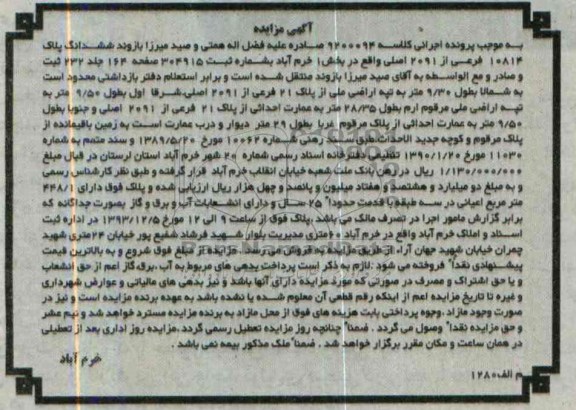 آگهی مزایده
به موجب پرونده اجرائی کلاسه ۹۲۰۰۰۹۴ صادره علیه فضل اله همتی و صید میرزا بازوند ششدانگ پلاک
۱۰۸۱۴ فرعی از ۲۰۹۱ اصلی واقع در بخش۱ خرم آباد بشماره ثبت ۳۰۴۹۱۵ صفحه ۱۶۴ جلد ۲۳۲ ثبت
و صادر و مع الواسطه به آقای صید میرزا بازوند منتقل شده است و برابر استعلام دفتر بازداشتی محدود است
به شمالا بطول ۹/۳۰ متر به تپه اراضی ملی از پلاک ۲۱ فرعی از ۲۰۹۱ اصلی.شرقا اول بطول ۹/۵۰ متر به
تپه اراضی ملی مرقوم ارم بطول ۲۸/۳۵ متر به عمارت احداثی از پلاک ۲۱ فرعی از ۲۰۹۱ اصلی و جنوبا بطول
۹/۵۰ متر به عمارت احداثی از پلاک مرقوم غربا بطول ۲۹ متر دیوار و درب عمارت است به زمین باقیمانده از
پلاک مرقوم و کوچه جدید الاحداث طبق سند رهنی شماره ۱۰۰۶۲ مورخ ۱۳۸۹/۵/۲۰ و سند متمم به شماره
۱۱۰۳۰ مورخ ۱۳۹۰/۱/۲۰ تنظیمی دفترخانه اسناد رسمی شماره ۲۰ شهر خرم آباد استان لرستان در قبال مبلغ
۱/۱۳۰/۰۰۰/۰۰۰ ریال در رهن بانک ملت شعبه خیابان انقلاب خرم آباد قرار گرفته و طبق نظر کارشناس رسمی
و به مبلغ دو میلیارد و هشتصد و هفتاد میلیون و پانصد و چهل هزار ریال ارزیابی شده و پلاک فوق دارای ۴۴۸/۱
متر مربع اعیانی در سه طبقه با قدمت حدودا" ۲۵ سال و دارای انشعابات آب و برق و گاز بصورت جداگانه که
برابر گزارش مامور اجرا در تصرف مالک می باشد .پلاک فوق از ساعت ۹ الی ۱۲ مورخ ۱۳۹۳/۱۲/۵ در اداره ثبت
اسناد و املاک خرم آباد واقع در خرم آباد ۶۰متری مدیریت بلوار شهید فرشاد شفیع پور خیابان ۲۴متری شهید
چمران خیابان شهید جهان آراء از طریق مزایده به فروش می رسد .مزایده از مبلغ فوق شروع و به بالاترین قیمت
پیشنهادی نقدا" فروخته می شود .لازم به ذکر است پرداخت بدهی های مربوط به آب ،برق،گاز اعم از حق انشعاب
و یا حق اشتراک و مصرف در صورتی که مورد مزایده دارای آنها باشد و نیز بدهی های مالیاتی و عوارض شهرداری
و غیره تا تاریخ مزایده اعم از اینکه رقم قطعی آن معلوم شده یا نشده باشد به عهده برنده مزایده است و نیز در
صورت وجود مازاد ،وجوه پرداختی بابت هزینه های فوق از محل مازاد به برنده مزایده مسترد خواهد شد و نیم عشر
و حق مزایده نقدا" وصول می گردد . ضمنا" چنانچه روز مزایده تعطیل رسمی گردد .مزایده روز اداری بعد از تعطیلی
در همان ساعت و مکان مقرر برگزار خواهد شد . ضمنا" ملک مذکور بیمه نمی باشد .
خرم آباد
م الف۱۲۸۰